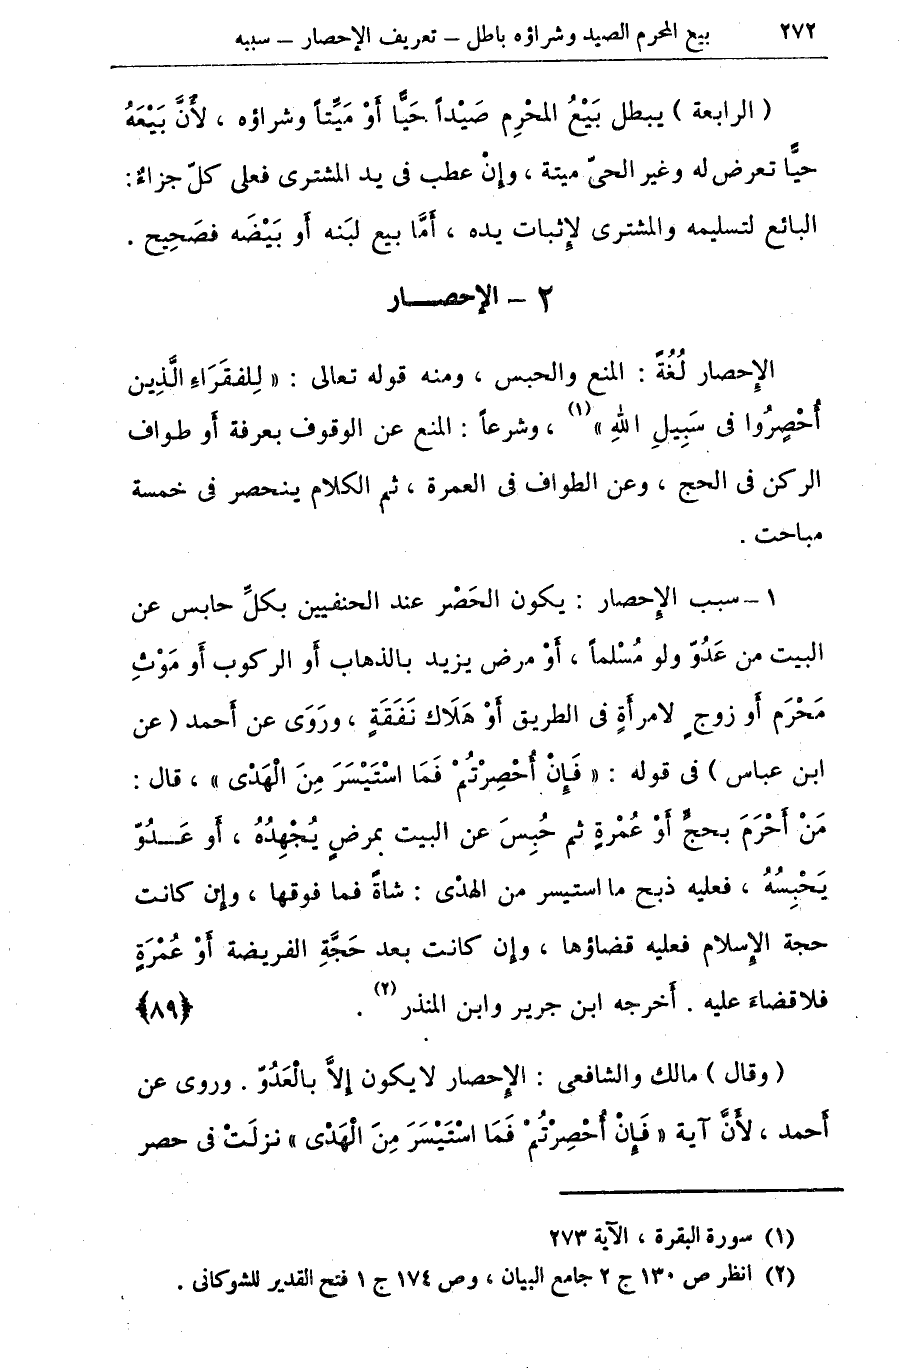 ٢٧٢ بيع المحرم الصيد وشراؤه باطل – تعريف الإحصار – سببه
( الرابعة ) يبطل بَيْعُ المحْرِم صَيْداً حَيًّا أَوْ مَيِّتاً وشراؤه ، لأَنَّ بَيْعَهُ
حيًّا تعرض له وغير الحىّ ميتة ، وإنْ عطب فى يد المشترى فعلى كلّ جزاءٌ :
البائع لتسليمه والمشترى لإثبات يده ، أَمَّا بيع لبَنه أو بَيْضَه فصَحِيح .
٢ – الإحصـــار
الإحصار لُغُةً : المنع والحبس ، ومنه قوله تعالى : « لِلفقَرَاءِ الَّذِين
أُحْصِرُوا فى سَبِيلِ اللهِ »(١) ، وشرعاً : المنع عن الوقوف بعرفة أو طواف
الركن فى الحج ، وعن الطواف فى العمرة ، ثم الكلام ينحصر فى خمسة
مباحث .
١ – سبب الإحصار : يكون الحَصْر عند الحنفيين بكلِّ حابس عن
البيت من عَدُوّ ولو مُسْلماً ، أَوْ مرض يزيد بالذهاب أو الركوب أو مَوْتِ
مَحْرَم أو زوجٍ لامرأةٍ فى الطريق أَوْ هَلَاك نَفَقَةٍ ، ورَوَى عن أحمد ( عن
ابن عباس ) فى قوله : « فَإِنْ أُحْصِرْتُمْ فَمَا اسْتَيْسَرَ مِنَ الْهَدْى » ، قال :
مَنْ أَحْرَمَ بحجٍّ أَوْ عُمْرَةٍ ثم حُبِسَ عن البيت بمرضٍ يُجْهِدُهُ ، أو عَــدُوّ
يَحْبِسُهُ ، فعليه ذبح ما استيسر من الهدْى : شاةً فما فوقها ، وإن كانت
حجة الإسلام فعليه قضاؤها ، وإن كانت بعد حَجَّةِ الفريضة أَوْ عُمْرَةٍ
فلا قضاءَ عليه . أخرجه ابن جرير وابن المنذر (٢) . {٨٩}
( وقال ) مالك والشافعى : الإحصار لايكون إلاَّ بالْعَدُوّ . وروى عن
أحمد ، لأَنَّ آية « فَإِنْ أُحْصِرْتُمْ فَمَا اسْتَيْسَرَ مِنَ الْهَدْى » نزلَتْ فى حصر
(١) سورة البقرة ، الآية ٢٧٣
(٢) انظر ص ١٣٠ ج ٢ جامع البيان ، وص ١٧٤ ج ١ فتح القدير للشوكانى .